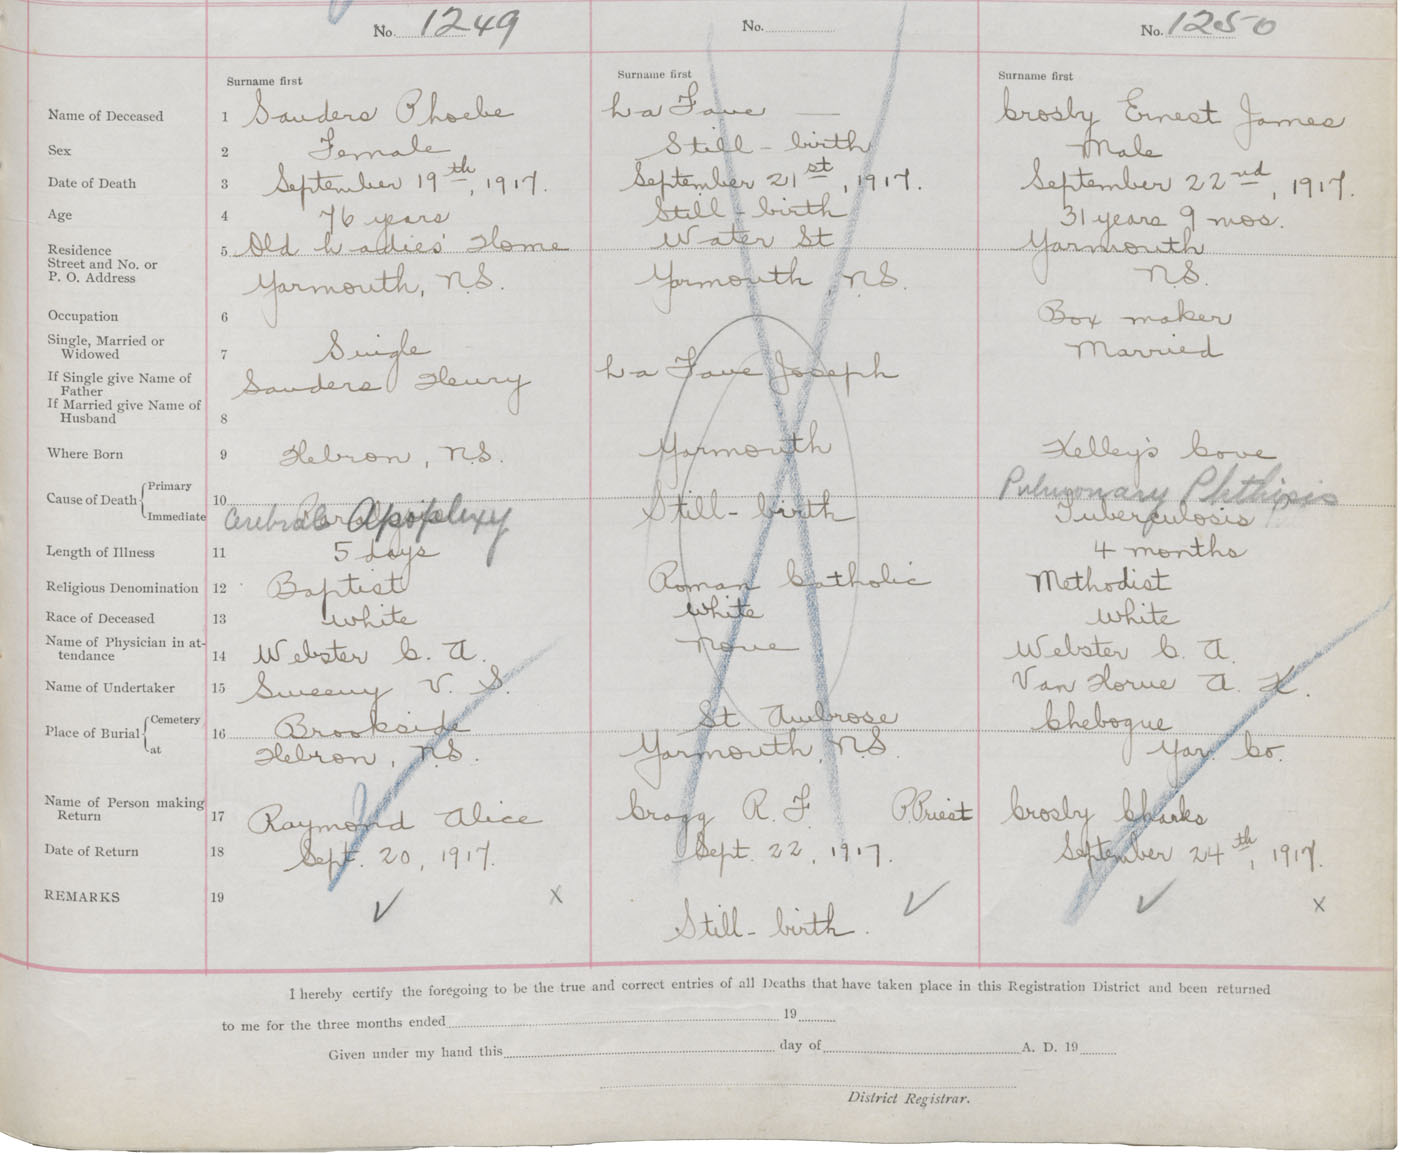 No. 1249 No. No. 1250
Surname first Surname first Surname first
Name of Deceased 1 Sanders Phoebe La Fave — Crosby Ernest James
Sex 2 Female Still-birth Male
Date of Death 3 September 19th, 1917. September 21st, 1917. September 22nd, 1917.
Age 4 76 years Still-birth 31 years 9 mos.
Residence 5 Old Ladies' Home Water St Yarmouth
Street and No. or
P. O. Address Yarmouth, N.S. Yarmouth, N.S. N.S.
Occupation 6 Box maker
Single, Married or
Widowed 7 Single Married
If Single give Name of
Father Sanders Henry La Fave Joseph
If Married give Name of
Husband 8
Where Born 9 Hebron, N.S. Yarmouth Kelley's Cove
Cause of Death { Primary 10 Pulmonary Phthisis
Immediate Cerebral Apoplexy Still-birth Tuberculosis
Length of Illness 11 5 days 4 months
Religious Denomination 12 Baptist Roman Catholic Methodist
Race of Deceased 13 White White White
Name of Physician in at-
tendance 14 Webster C. A. None Webster C. A.
Name of Undertaker 15 Sweeny V. S. Van Horne A. K.
Place of Burial { Cemetery 16 Brookside St Ambrose Chebogue
at Hebron, N.S. Yarmouth, N.S. Yar. Co.
Name of Person making
Return 17 Raymond Alice Cragg R. F. P.Priest Crosby Charles
Date of Return 18 Sept. 20, 1917. Sept. 22, 1917. September 24th, 1917.
REMARKS 19 ✓ x ✓ ✓ x
Still-birth.
I hereby certify the foregoing to be the true and correct entries of all Deaths that have taken place in this Registration District and been returned
to me for the three months ended 19
Given under my hand this day of A. D. 19
District Registrar.